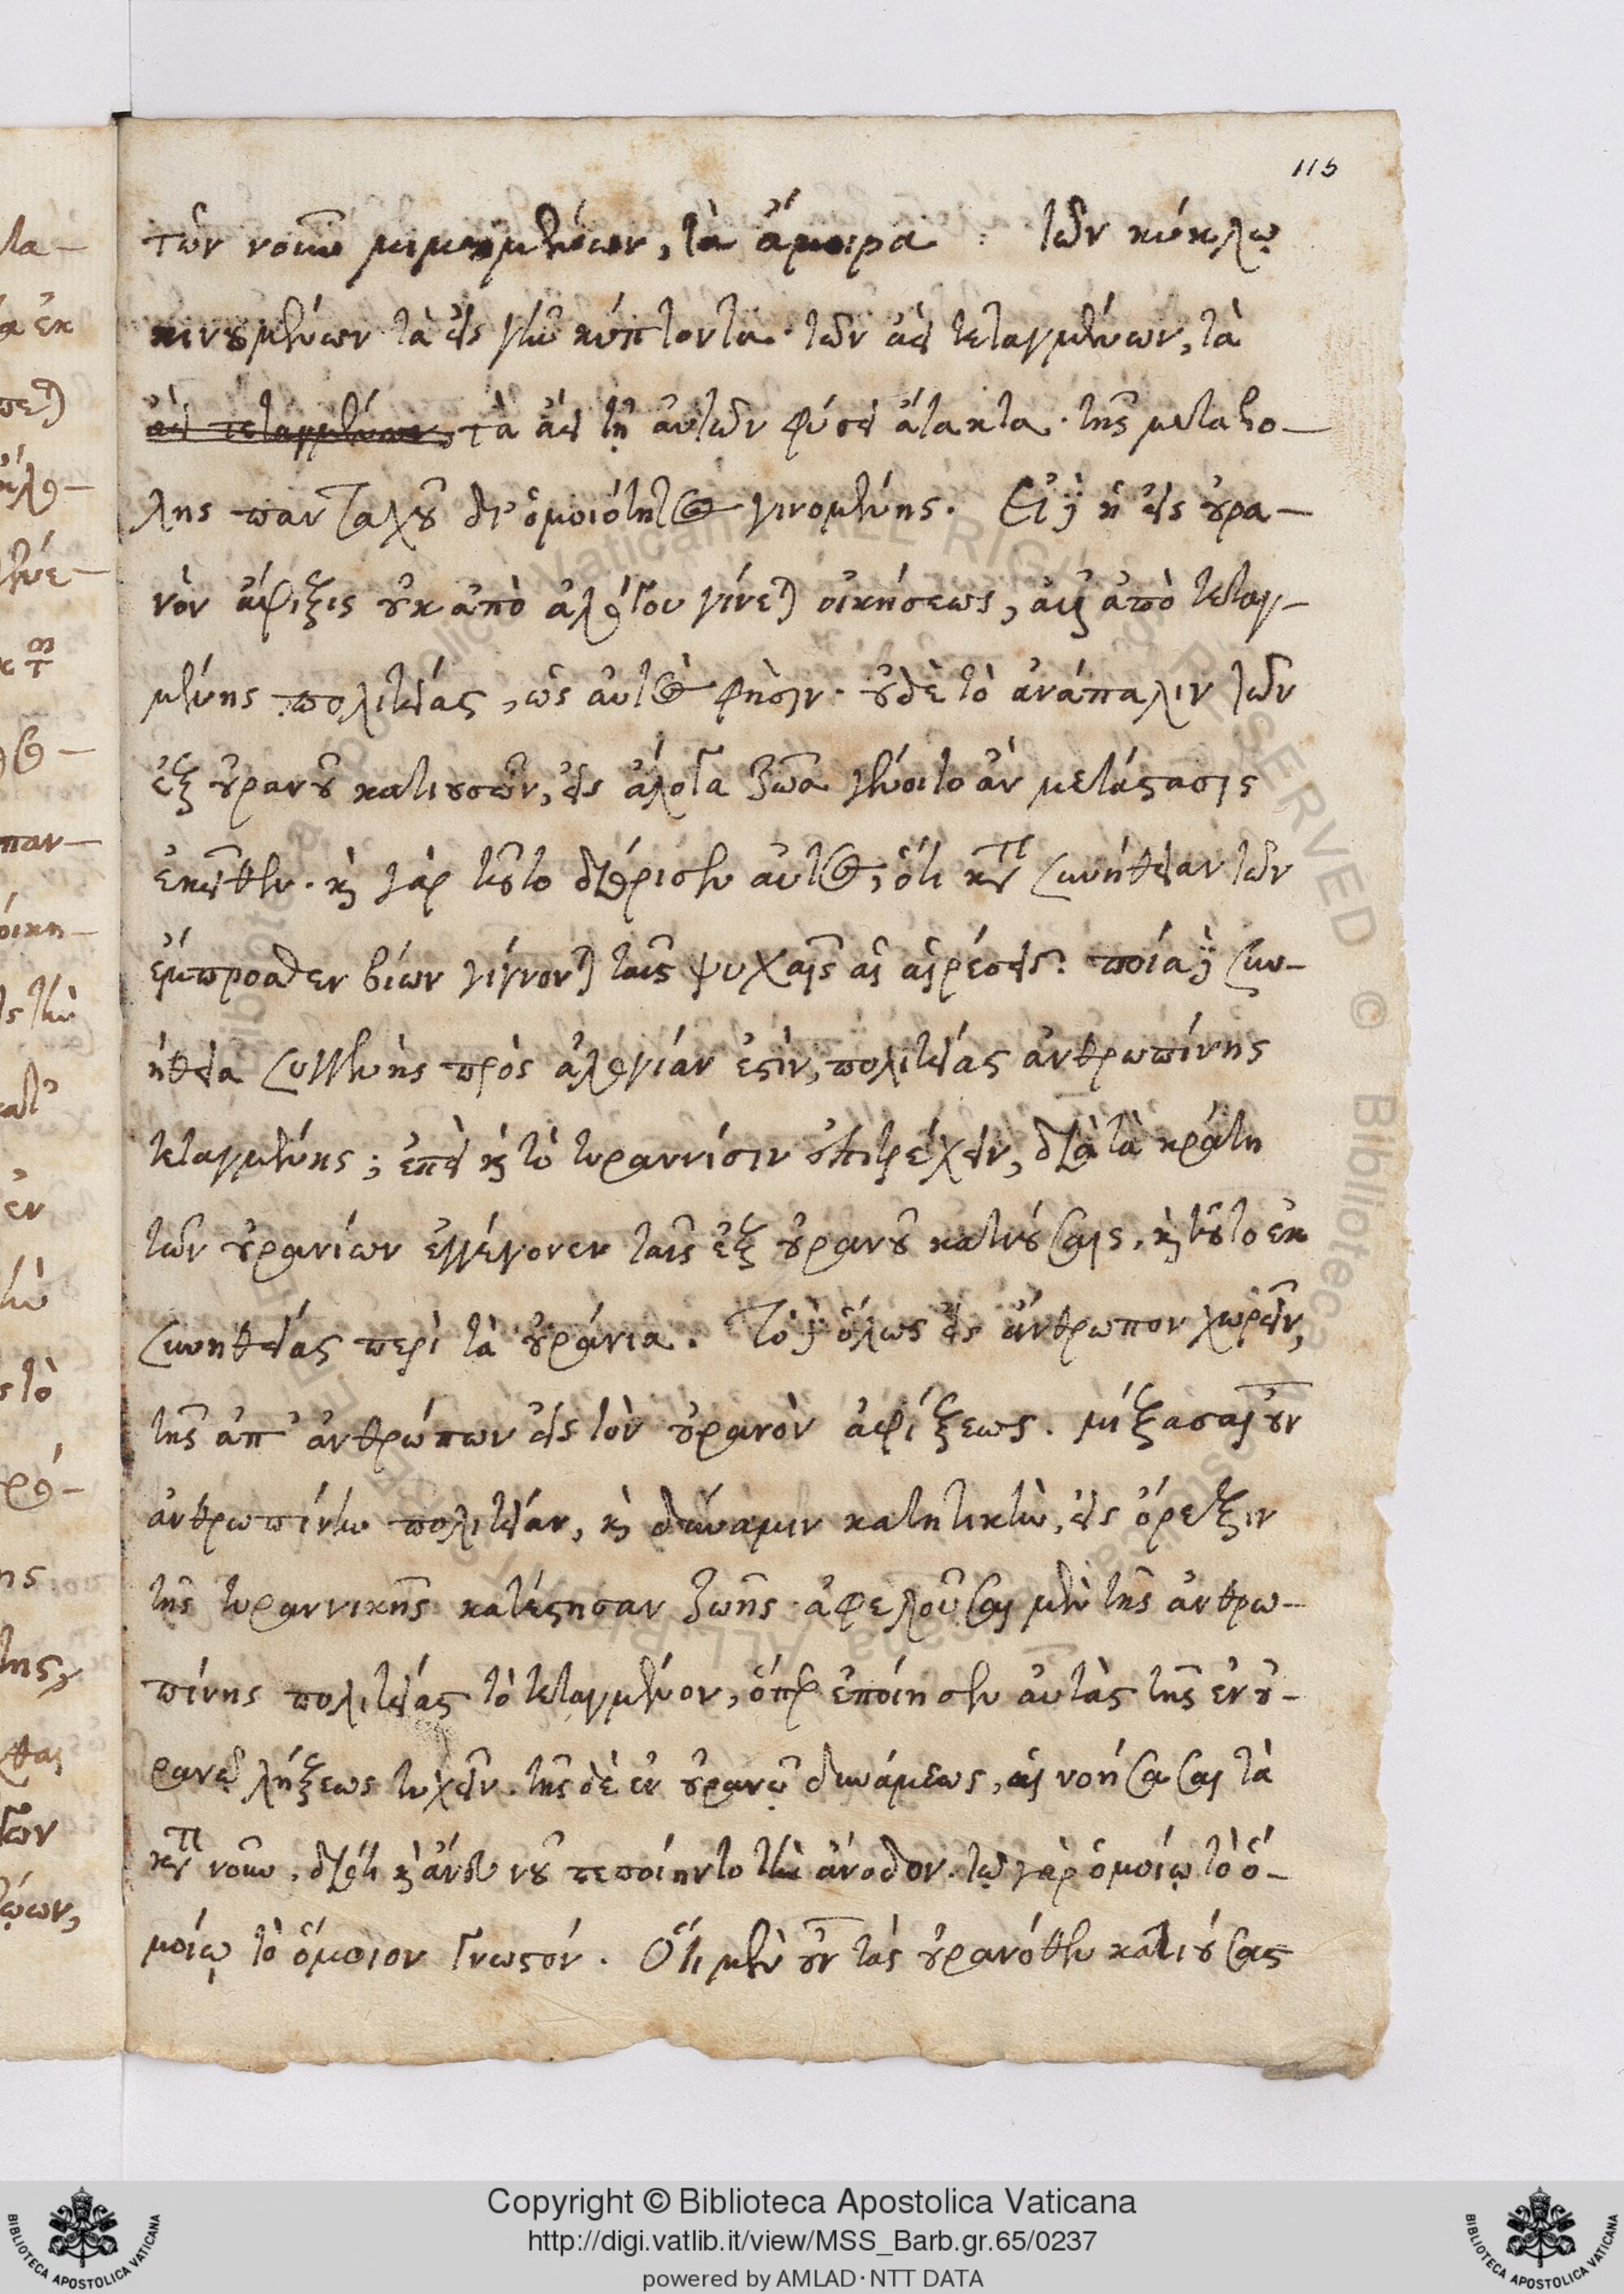 115
τῶν νοῦν μιμουμένων, τὰ ἄμοιρα · τῶν κύκλῳ
κινουμένων τὰ εἰς γῆν κύπτοντα · τῶν ἀεὶ τεταγμένων, τὰ
ἀεὶ τεταγμένως τὰ ἀεὶ τῇ αὐτῶν φύσει ἄτακτα · τῆς μεταβο-
λῆς πανταχοῦ δι' ὁμοιότητος γινομένης. Εἰ δὲ ἡ εἰς οὐρα-
νὸν ἄφιξις οὐκ ἀπὸ ἀλόγου γίνεται οἰκήσεως, ἀλλ' ἀπὸ τεταγ-
μένης πολιτείας, ὡς αὐτός φησιν · οὐδὲ τὸ ἀνάπαλιν τῶν
ἐξ οὐρανοῦ κατιουσῶν, εἰς ἄλογα ζῶα γένοιτο ἂν μετάστασις
ἐκεῖθεν · καὶ γὰρ τοῦτο διώρισεν αὐτός, ὅτι κατὰ συνήθειαν τῶν
ἔμπροσθεν βίων γίγνονται ταῖς ψυχαῖς αἱ αἱρέσεις · ποία δὲ συν-
ήθεια συγγενὴς πρὸς ἀλογίαν ἐστὶν, πολιτείας ἀνθρωπίνης
τεταγμένης; ἐπεὶ καὶ τὸ τυραννίσιν ἐπιτρέχειν, διὰ τὰ κράτη
τῶν οὐρανίων ἐγγέγονεν ταῖς ἐξ οὐρανοῦ κατιούσαις, καὶ τοῦτο ἐκ
συνηθείας περὶ τὰ οὐράνια. Τὸ δὲ ὅλως εἰς ἄνθρωπον χωρεῖν,
τῆς ἀπ' ἀνθρώπων εἰς τὸν οὐρανὸν ἀφίξεως. μίξασαι οὖν
ἀνθρωπίνην πολιτείαν, καὶ δύναμιν κατητικὴν, εἰς ὄρεξιν
τῆς τυραννικῆς κατέστησαν ζωῆς · ἀφελοῦσαι μὲν τῆς ἀνθρω-
πίνης πολιτείας τὸ τεταγμένον, ὅπερ ἐποίησεν αὐτὰς τῆς ἐν οὐ-
ρανῷ λήξεως τυχεῖν. τῆς δὲ ἐν οὐρανῷ δυνάμεως, αἱ νοήσασαι τὰ
κατὰ νοῦν, διότι καὶ ἄνευ νοῦ πεποίηντο τὴν ἄνοδον. τῷ γὰρ ὁμοίῳ τὸ ὁ-
μοίῳ τὸ ὅμοιον γνωστόν. Ὅτι μὲν οὖν τὰς οὐρανόθεν κατιούσας
Copyright © Biblioteca Apostolica Vaticana
http://digi.vatlib.it/view/MSS_Barb.gr.65/0237
powered by AMLAD · NTT DATA